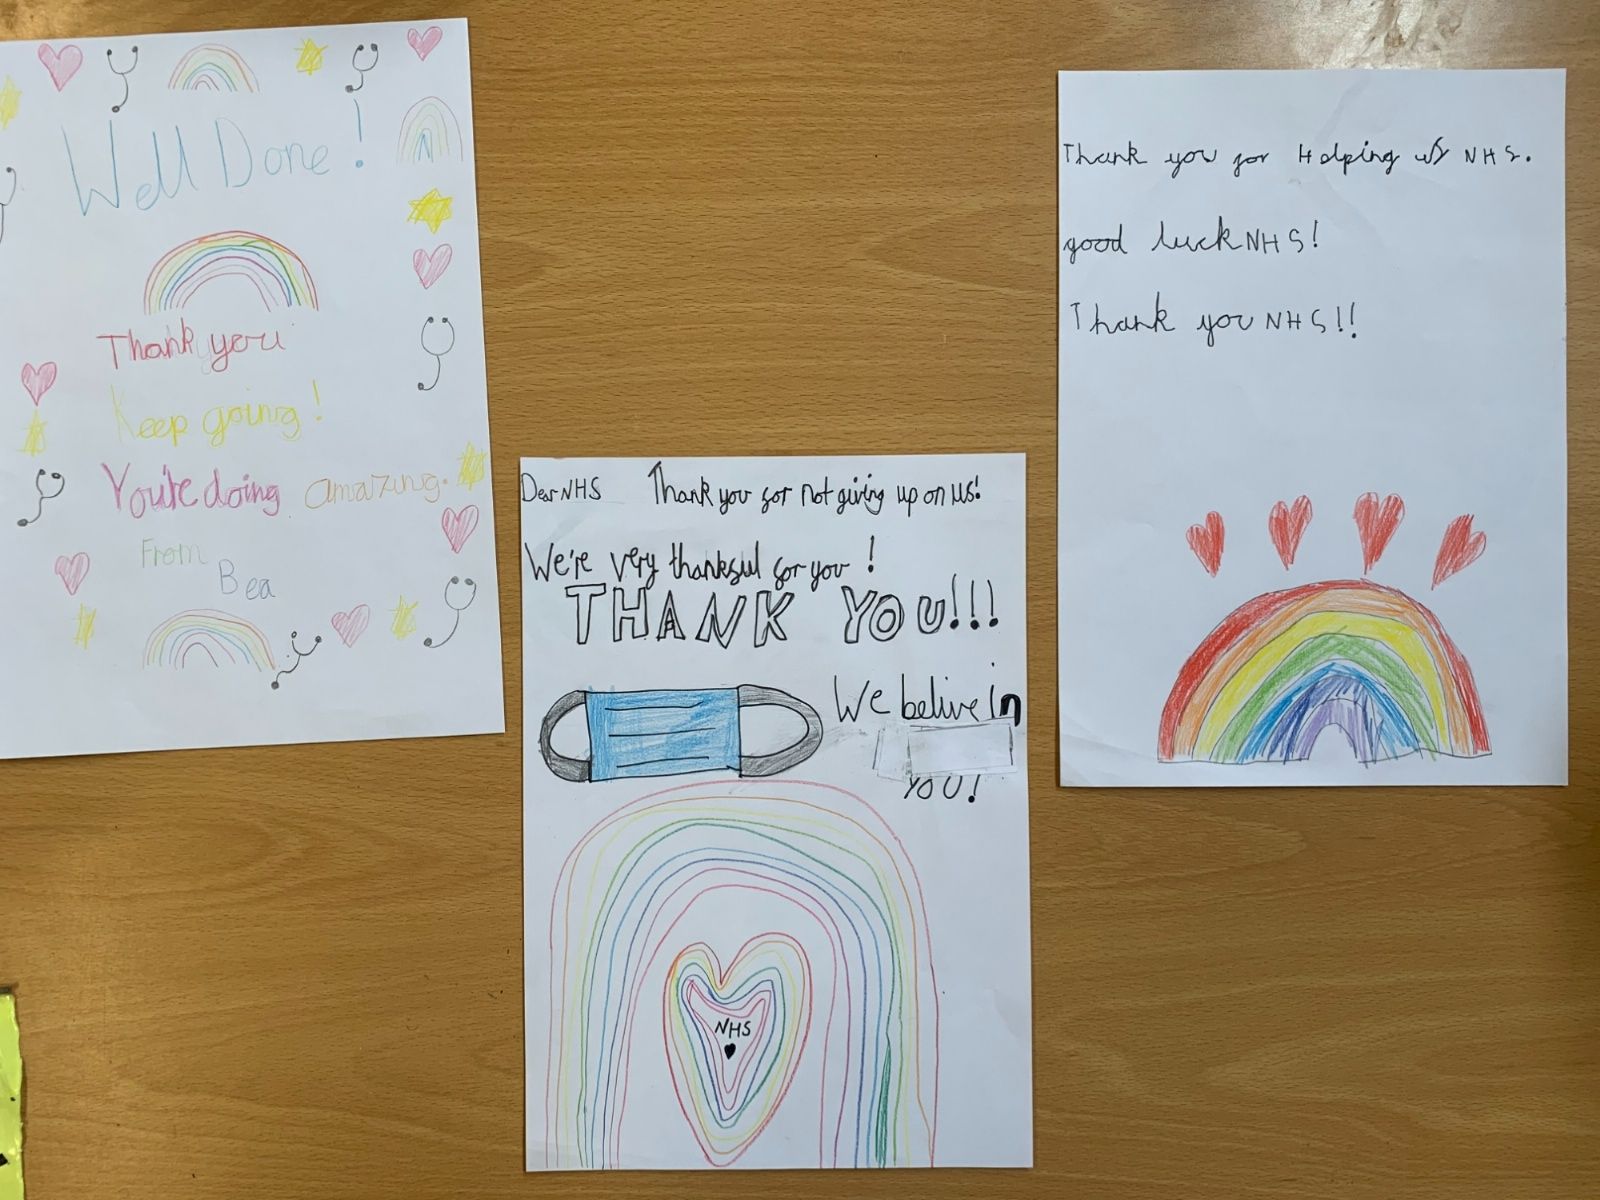 Well Done!
Thank you
Keep going!
You're doing amazing.
From
Bea
Dear NHS Thank you for not giving up on us!
We're very thankful for you!
THANK YOU!!!
We belive in
YOU!
NHS
Thank you for Helping us NHS.
good luck NHS!
Thank you NHS!!